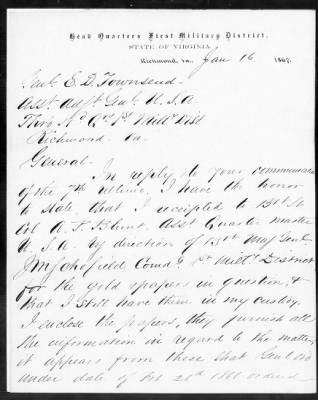 Head Quarters First Military District,
STATE OF VIRGINIA.
Richmond, Va., Jan 16 1867.
Genl E. D. Townsend
Asst Adjt Genl U.S.A.
Thro Hd Qrs 1st Milty Dist
Richmond Va
General
In reply to your communication
of the 7th ultimo, I have the honor
to state, that I receipted to Bvt Lt
Col A. P. Blunt, Asst Quarter master
U.S.A. by direction of Bvt Maj Genl
J M Schofield Comdg 1st Milty District
for the gold in question, &
that I still have them in my custody.
I enclose the papers, they furnish all
the information in regard to the matter,
it appears from these that Genl
under date of 25th 1866 ordered